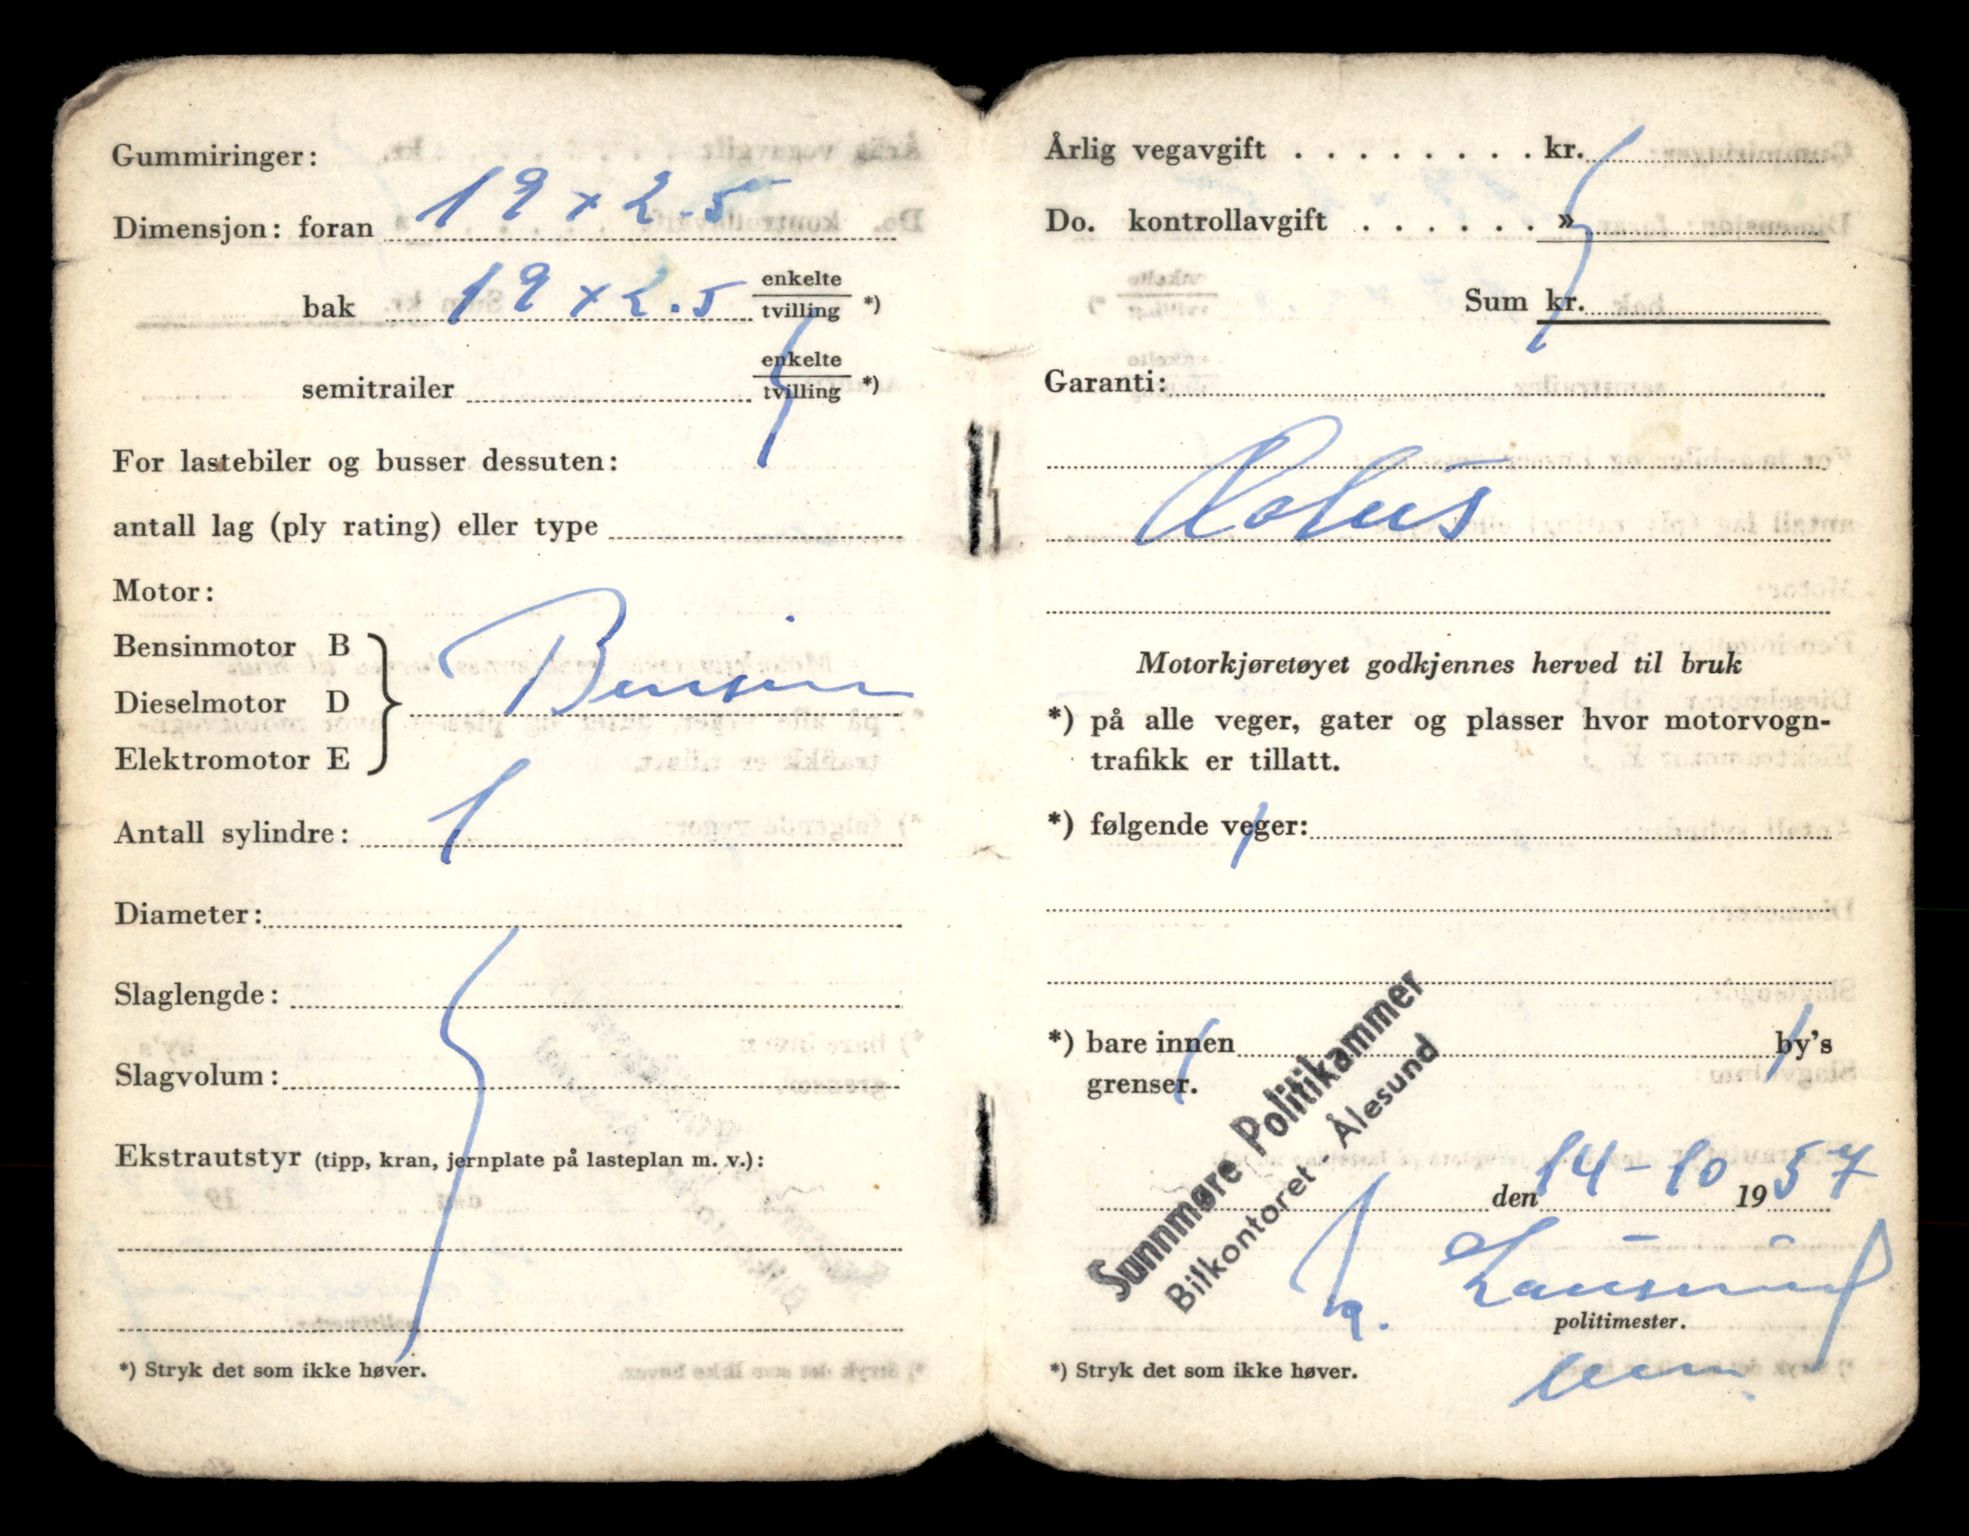 Gummiringer:
Dimensjon: foran 19 x 2.5
bak 19 x 2.5 enkelte
tvilling *)
semitrailer enkelte
tvilling *)
For lastebiler og busser dessuten:
antall lag (ply rating) eller type
Motor:
Bensinmotor B
Dieselmotor D Bensin
Elektromotor E
Antall sylindre: 1
Diameter:
Slaglengde:
Slagvolum:
Ekstrautstyr (tipp, kran, jernplate på lasteplan m. v.):
*) Stryk det som ikke høver.
Årlig vegavgift . . . . . . . . kr.
Do. kontrollavgift . . . . . . »
Sum kr.
Garanti:
Motorkjøretøyet godkjennes herved til bruk
*) på alle veger, gater og plasser hvor motorvogn-
trafikk er tillatt.
*) følgende veger:
*) bare innen by's
grenser.
Sunnmøre Politikammer
Bilkontoret - Ålesund
den 14-10 1957
politimester.
*) Stryk det som ikke høver.